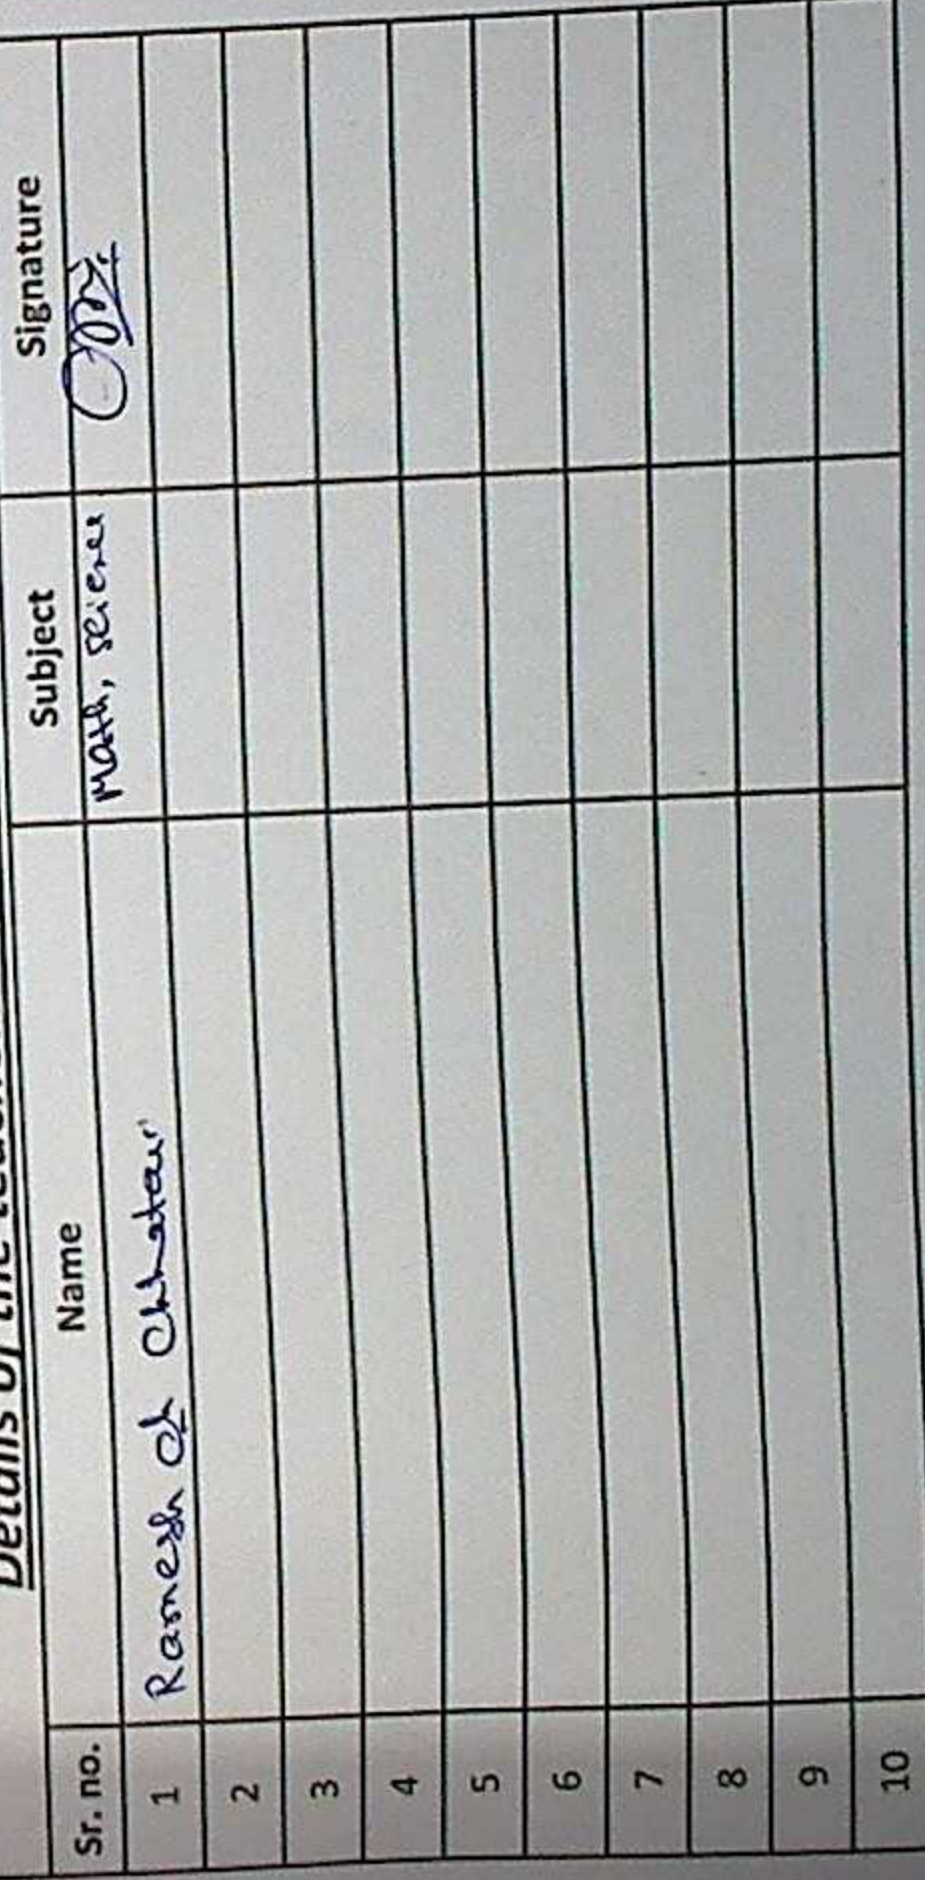 Details of the
Sr. no. Name Subject Signature
1 Ramesh Chhatar math, science
2
3
4
5
6
7
8
9
10